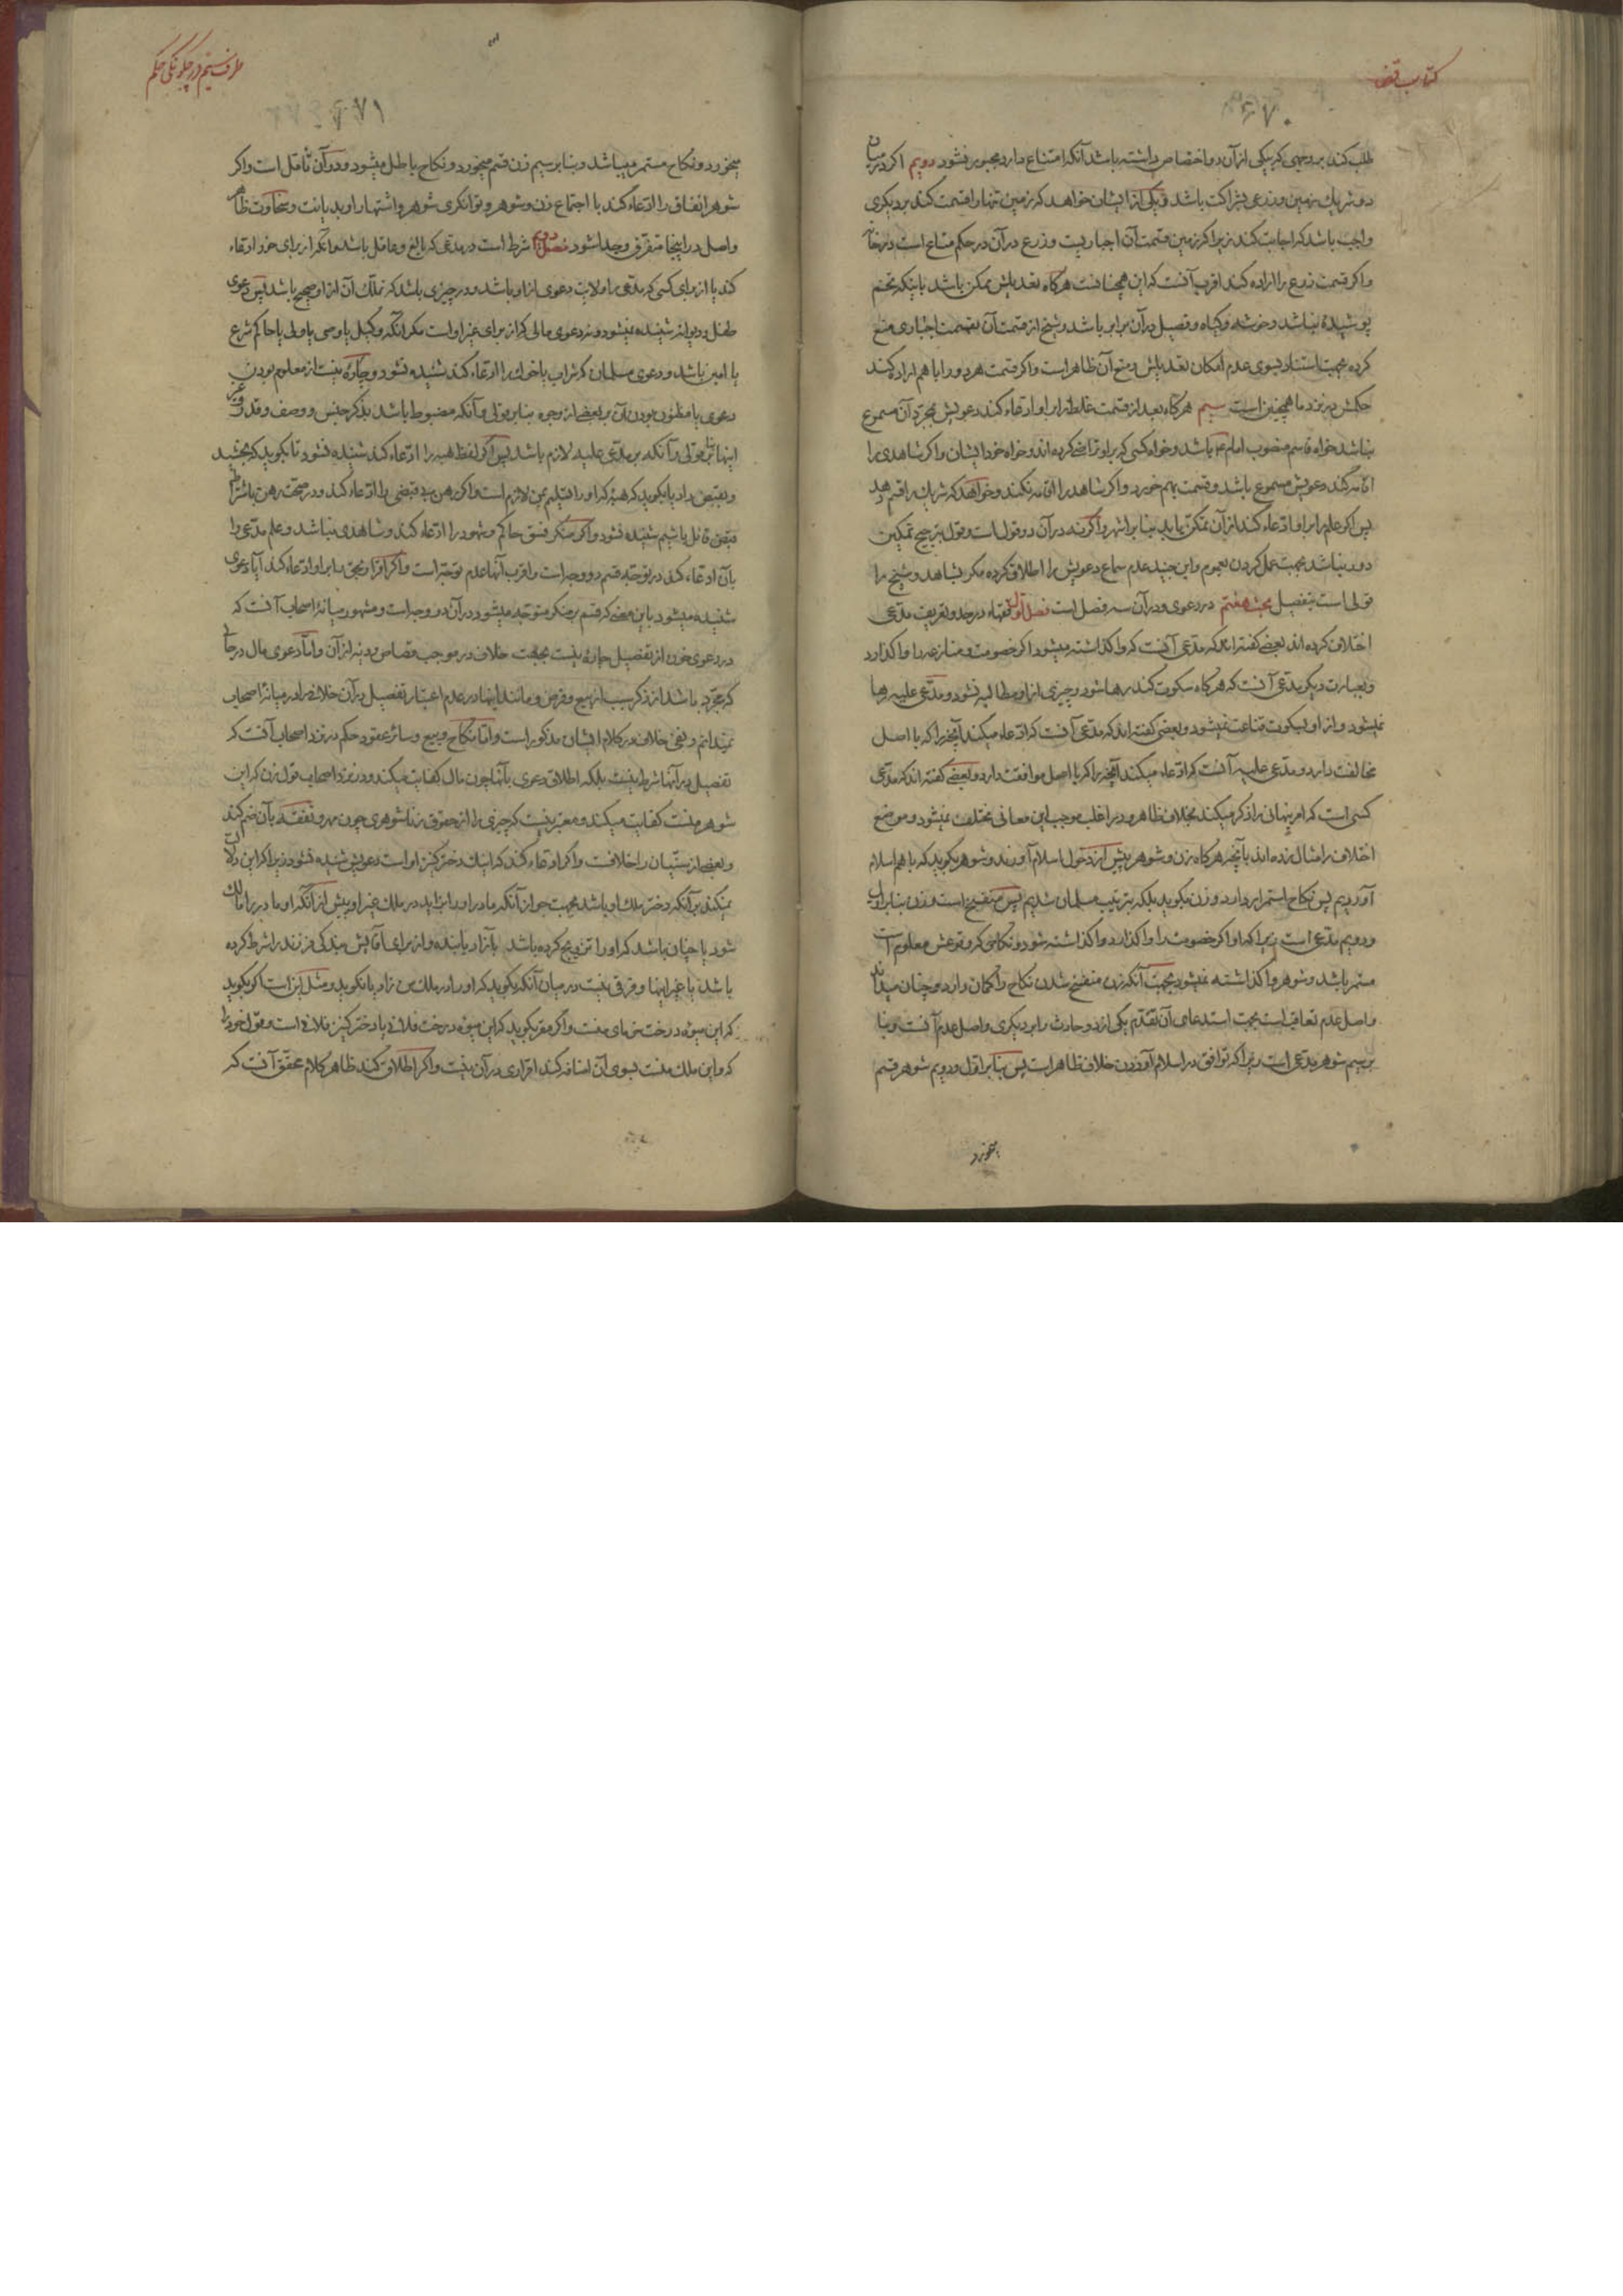 کتاب قضا
۶۷۰
طلب کند بر وجهی که بیکی از آن دو اختصاص داشته باشد آنکه امتناع دارد مجبور نشود دویم اگر در میان
دو شریک زمین و زرعی بشراکت باشد و یکی از ایشان خواهد که زمین تنها را قسمت کند بر دیگری
واجب باشد که اجابت کند زیرا که زمین قسمت آن اجباریست و زرع در آن در حکم متاع است در خانه
و اگر قسمت زرع را اراده کند اقرب آنست که این همچنانست هرگاه تعدیلش ممکن باشد باینکه تخم
پوشیده نباشد و خوشه و گیاه و قصیل در آن برابر باشد و شیخ از قسمت آن بقسمت اجباری منع
کرده بجهت استناد بسوی عدم امکان تعدیلش و منع آن ظاهر است و اگر قسمت هر دو را با هم اراده کند
حکمش در نزد ما همچنین است سیم هرگاه بعد از قسمت غلط را بر او ادعاء کند دعویش بمجرد آن مسموع
نباشد خواه قاسم منصوب امام ع باشد و خواه کسی که بر او تراضی کرده‌اند و خواه خود ایشان و اگر شاهدی را
اقامه کند دعویش مسموع باشد و قسمت بهم خورد و اگر شاهد را اقامه نکند و خواهد که شریک را قسم دهد
پس اگر علم را بر او ادعاء کند از آن تمکن یابد بنا بر اشهر و اگرنه در آن دو قول است و قول بترجیح تمکین
دور نباشد بجهت عمل کردن بعموم و ابن جنید عدم سماع دعویش را اطلاق کرده مگر بشاهد و شیخ را
قولی است بتفصیل بحث هفتم در دعوی و در آن سه فصل است فصل اول فقهاء در حد و تعریف مدعی
اختلاف کرده‌اند بعضی گفته‌اند که مدعی آنست که واگذاشته میشود اگر خصومت و منازعه را واگذارد
و بعبارت دیگر مدعی آنست که هرگاه سکوت کند رها شود و چیزی از او مطالبه نشود و مدعی علیه رها
نمیشود و از او بسکوت قناعت نمیشود و بعضی گفته‌اند که مدعی آنست که ادعاء میکند آنچه را که با اصل
مخالفت دارد و مدعی علیه آنست که ادعاء میکند آنچه را که با اصل موافقت دارد و بعضی گفته‌اند که مدعی
کسی است که امر پنهانی را ذکر میکند بخلاف ظاهر و در اغلب موجب این معانی مختلف نمیشود و موضع
اختلاف را مثال زده‌اند بآنچه هرگاه زن و شوهر پیش از دخول اسلام آورند و شوهر بگوید که با هم اسلام
آوردیم پس نکاح استمرار دارد و زن بگوید بلکه بترتیب مسلمان شدیم پس منفسخ است و زن بنا بر اول
و دویم مدعی است زیرا که او اگر خصومت را واگذارد واگذاشته شود و نکاحی که وقوعش معلوم است
مستمر باشد و شوهر واگذاشته نمیشود بجهت آنکه زن منفسخ شدن نکاح را گمان دارد و چنان میداند
و اصل عدم تعاقب است بجهت استدعای آن تقدم یکی از دو حادث را بر دیگری و اصل عدم آنست و بنا
بر سیم شوهر مدعی است زیرا که توافق در اسلام آوردن خلاف ظاهر است پس بنا بر اول و دویم شوهر قسم
میخورد
طرف سیم در چگونگی حکم
۶۷۱
میخورد و نکاح مستمر میباشد و بنا بر سیم زن قسم میخورد و نکاح باطل میشود و در آن تأمل است و اگر
شوهر انفاق را ادعاء کند با اجتماع زن و شوهر و توانگری شوهر و اشتهار او بدیانت و سخاوت ظاهر
و اصل در اینجا متفرق و جدا شود فصل دوم شرط است در مدعی که بالغ و عاقل باشد و آنکه از برای خود ادعاء
کند یا از برای کسی که مدعی را ولایت دعوی از او باشد و در چیزی باشد که تملک آن از او صحیح باشد پس دعوی
طفل و دیوانه شنیده نمیشود و نه دعوی مالی که از برای غیر او است مگر آنکه وکیل یا وصی یا ولی یا حاکم شرع
یا امین باشد و دعوی مسلمان که شراب یا خوک را ادعاء کند شنیده نشود و چاره نیست از معلوم بودن
دعوی یا مظنون بودن آن بر بعضی از وجوه بنا بر قولی و آنکه مضبوط باشد بذکر جنس و وصف و قدر و غیر
اینها بنا بر قولی و آنکه بر مدعی علیه لازم باشد پس اگر لفظ هبه را ادعاء کند شنیده نشود تا بگوید که بخشید
و بقبض داد یا بگوید که هبه که او را تسلیم بمن لازم است و اگر رهن بی قبضی را ادعاء کند و در صحت رهن باشتراط
قبض قائل باشیم شنیده نشود و اگر منکر فسق حاکم و شهود را ادعاء کند و شاهدی نباشد و علم مدعی را
بآن ادعاء کند در توجه قسم دو وجه است و اقرب آنها عدم توجه است و اگر اقرار بحق را بر او ادعاء کند آیا دعوی
شنیده میشود باین معنی که قسم بر منکر متوجه میشود در آن دو وجه است و مشهور میانهٔ اصحاب آنست که
در دعوی خون از تفصیل چاره نیست بجهت خلاف در موجب قصاص و دیه از آن و اما دعوی مال در حالی
که مجرد باشد از ذکر سبب از بیع و قرض و مانند اینها در عدم اعتبار تفصیل در آن خلافی را در میانهٔ اصحاب
نمیدانم و نفی خلاف در کلام ایشان مذکور است و اما نکاح و بیع و سائر عقود حکم در نزد اصحاب آنست که
تفصیل در آنها شرط نیست بلکه اطلاق دعوی بآنها چون مال کفایت میکند و در نزد اصحاب قول زن که این
شوهر منست کفایت میکند و معتبر نیست که چیزی را از حقوق زناشوهری چون مهر و نفقه بآن ضم کند
و بعضی از سنیان را خلافست و اگر ادعاء کند که اینک دختر کنیز او است دعویش شنیده نشود زیرا که این دلالت
نمیکند بر آنکه دختر ملک او باشد بجهت جواز آنکه مادر او را زاید در ملک غیر او پیش از آنکه او مادر را مالک
شود یا چنان باشد که او را تزویج کرده باشد بآزاد یا بنده و از برای آقایش بندگی فرزند را شرط کرده
باشد یا غیر اینها و فرقی نیست در میان آنکه بگوید که او را در ملک من زاد یا نگوید و مثل این است اگر بگوید
که این میوه درخت خرمای منست و اگر مقر بگوید که این میوه درخت فلانی یا دختر کنیز فلانی است و قول خود را
که و این ملک منست بسوی آن اضافه کند اقراری در آن نیست و اگر اطلاق کند ظاهر کلام محقق آنست که